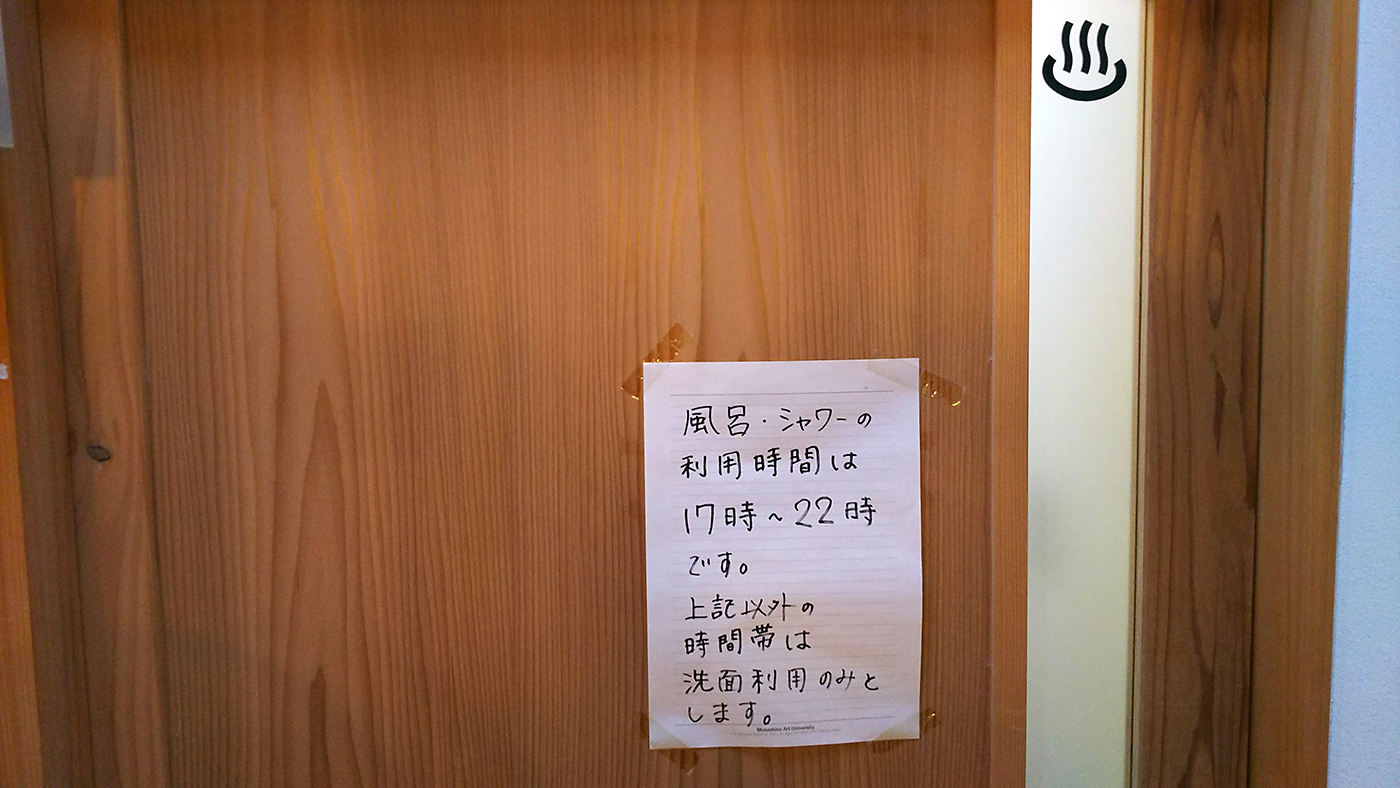 風呂・シャワーの
利用時間は
17時~22時
です。
上記以外の
時間帯は
洗面利用のみと
します。
Musashino Art University